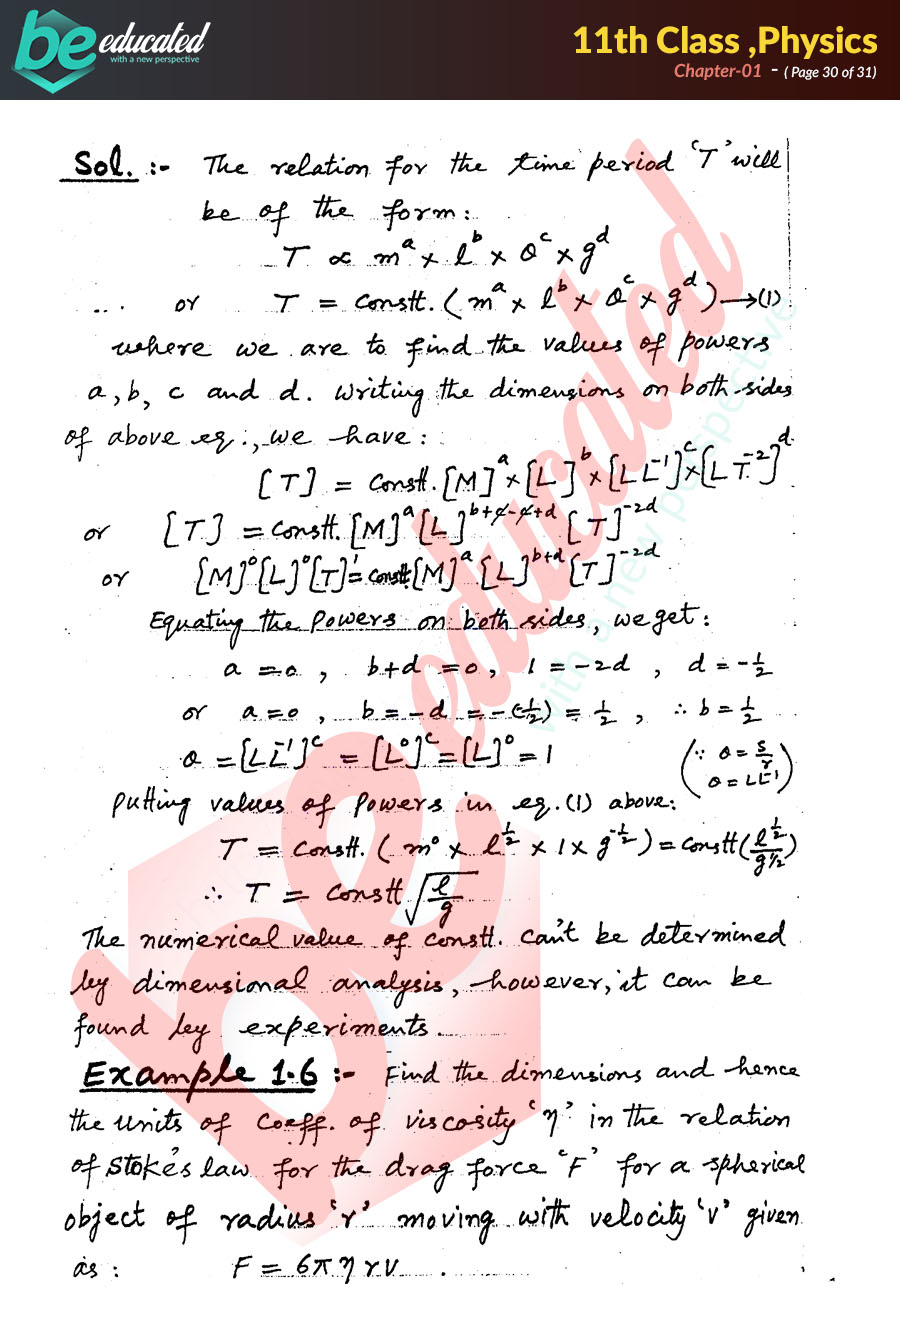 be educated
with a new perspective
11th Class ,Physics
Chapter-01 - ( Page 30 of 31)
Sol. :- The relation for the time period 'T' will
be of the form:
T ∝ m^a × l^b × θ^c × g^d
or T = Constt. (m^a × l^b × θ^c × g^d) → (1)
where we are to find the values of powers
a, b, c and d. Writing the dimensions on both sides
of above eq., we have:
[T] = Constt. [M]^a × [L]^b × [L L^-1]^c × [L T^-2]^d
or [T] = Constt. [M]^a [L]^b+c-c+d [T]^-2d
or [M]^0 [L]^0 [T]^1 = constt. [M]^a [L]^b+d [T]^-2d
Equating the Powers on both sides, we get:
a = 0 , b+d = 0, 1 = -2d , d = -1/2
or a = 0 , b = -d = -(-1/2) = 1/2 , ∴ b = 1/2
θ = [L L^-1]^c = [L^0]^c = [L]^0 = 1 (∵ θ = S/r
θ = L L^-1)
Putting values of Powers in eq. (1) above:
T = Constt. ( m^0 × l^1/2 × 1 × g^-1/2 ) = Constt (l^1/2 / g^1/2)
∴ T = Constt √l/g
The numerical value of constt. can't be determined
by dimensional analysis, however, it can be
found by experiments.
Example 1.6 :- Find the dimensions and hence
the units of Coeff. of viscosity 'η' in the relation
of Stoke's law for the drag force 'F' for a spherical
object of radius 'r' moving with velocity 'v' given
as : F = 6π η r v .
be educated
with a new perspective